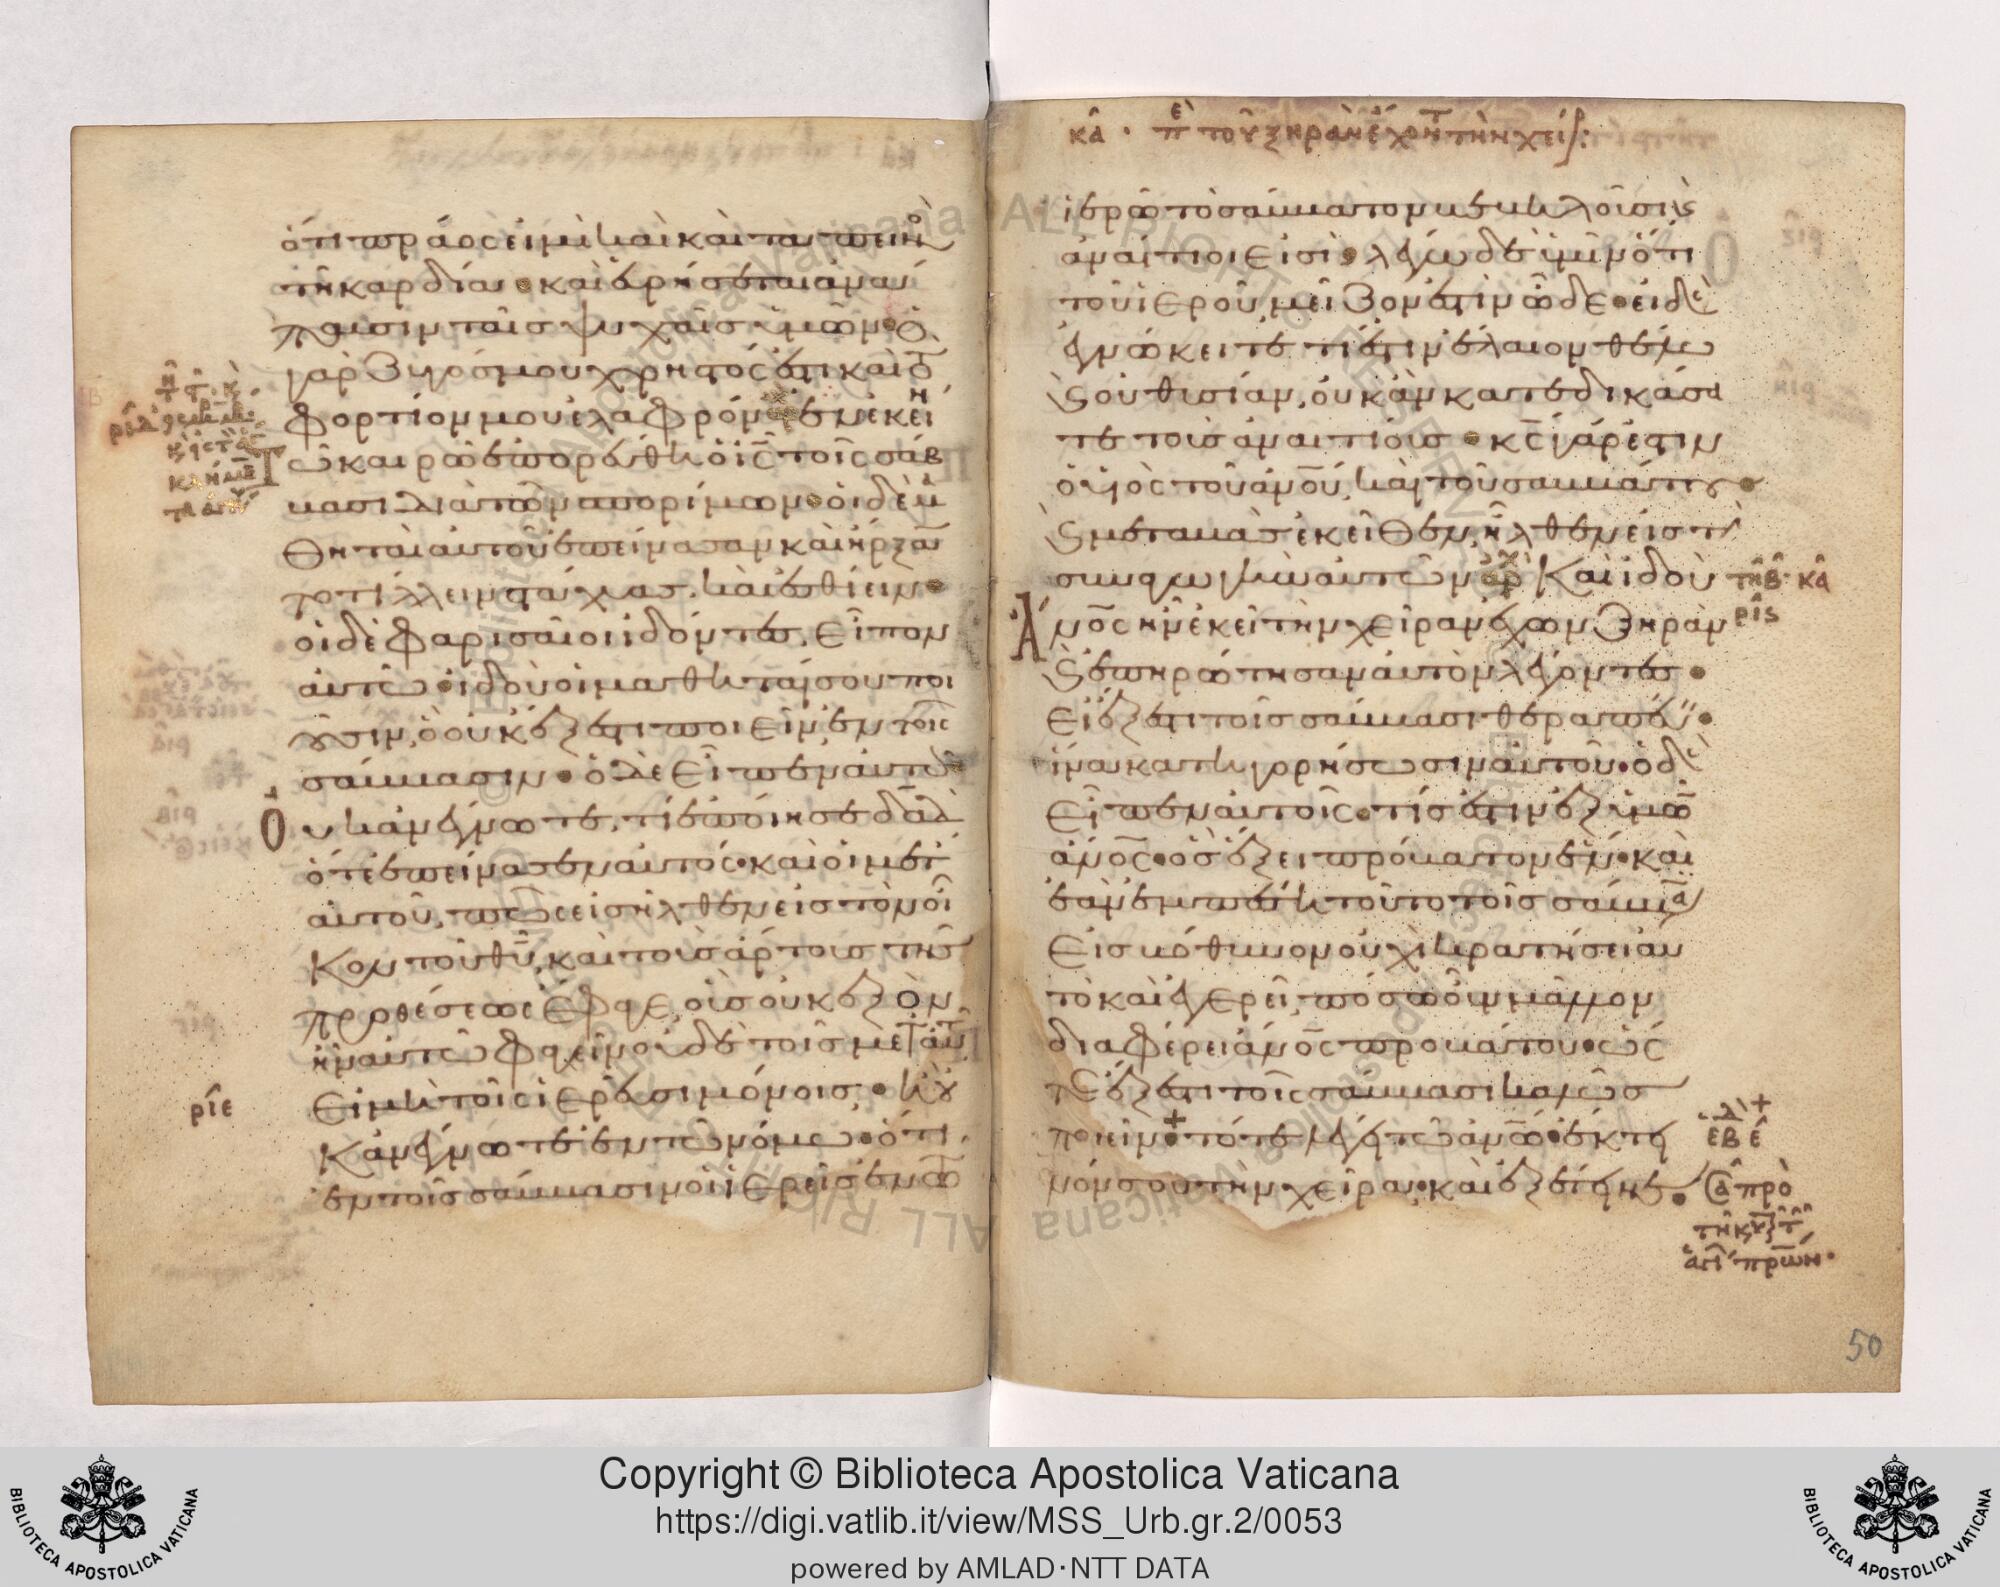 ὅτι πρᾶος εἰμὶ καὶ ταπεινὸ
τῆ καρδία· καὶ εὑρήσεται ἀνά
παυσιν ταῖς ψυχαῖς ὑμῶν· ὁ
γὰρ ζυγός μου χρηστός ἐστι καὶ τὸ
φορτίον μου ἐλαφρόν· ἐν ἐκεί
ω καιρῶ ἐπορεύθη ὁ ις τοῖς σάβ
βασι διὰ τῶν σπορίμων· οἱ δὲ μα
θηταὶ αὐτοῦ ἐπείνασαν καὶ ἤρξαν
το τίλλειν στάχυας, καὶ ἐσθίειν·
οἱ δὲ φαρισαῖοι ἰδόντες, εἶπον
αὐτῶ· ἰδοὺ οἱ μαθηταί σου ποι
οῦσιν, ὃ οὐκ ἔξεστι ποιεῖν, ἐν τοῖς
σάββασιν· ὁ δὲ εἶπεν αὐτοῖς
Οὐκ ἀνέγνωτε, τί ἐποίησε δαδ
ὅτε ἐπείνασεν αὐτός· καὶ οἱ μετ
αὐτοῦ, πῶς εἰσῆλθεν εἰς τὸν οἶ
κον τοῦ θυ, καὶ τοὺς ἄρτους τῆς
προθέσεως ἔφαγε, οὓς οὐκ ἐξὸν
ἦν αὐτῶ φαγεῖν οὐδὲ τοῖς μετ αὐτ
εἰ μὴ τοῖς ἱερεῦσι μόνοις· ἢ οὐ
ριε
κ ἀνέγνωτε ἐν τῶ νόμω· ὅτι
ἐν τοῖς σάββασιν οἱ ἱερεῖς ἐν τῶ
κα · πε τοῦ ξηρὰν ἔχοντ τὴν χεῖρ:
ἱερῶ τὸ σάββατον βεβηλοῦσι καὶ
ἀναίτιοι εἰσὶ· λέγω δὲ ὑμῖν ὅτι
τοῦ ἱεροῦ, μεῖζον ἐστιν ὧδε· εἰ δὲ
ἐγνώκειτε τί ἐστιν ἔλαιον θέλω
καὶ οὐ θυσίαν, οὐκ ἂν κατεδικάσα
τε τοὺς ἀναιτίους· κς γάρ ἐστιν
ὁ υἱὸς τοῦ ανου, καὶ τοῦ σαββάτου·
καὶ μεταβὰς ἐκεῖθεν, ἦλθεν εἰς τὴ
συναγωγὴν αὐτῶν ἀρχ Καὶ ἰδοὺ
κα
ρις
ἄνος ἦν ἐκεῖ τὴν χεῖρα ἔχων ξηρὰν
καὶ ἐπηρώτησαν αὐτὸν λέγοντες·
εἰ ἔξεστι τοῖς σάββασι θεραπεύ·
ἵνα κατηγορήσωσιν αὐτοῦ· ὁ δὲ
εἶπεν αὐτοῖς· τίς ἐστιν ἐξ ὑμῶ
ανος· ὃς ἕξει πρόβατον ἕν· καὶ
ἐὰν ἐμπέση τοῦτο τοῖς σάββα
εἰς βόθυνον οὐχὶ κρατήσει αὐ
τὸ καὶ ἐγερεῖ, πόσω οὖν μᾶλλον
διαφέρει ανος προβάτου· ὥς
τε ἔξεστι τοῖς σάββασι καλῶς
ποιεῖν· τότε λέγει τῶ ανω· ἔκτει
νόν σου τὴν χεῖρα, καὶ ἐξέτεινε·
50
Copyright © Biblioteca Apostolica Vaticana
https://digi.vatlib.it/view/MSS_Urb.gr.2/0053
powered by AMLAD·NTT DATA
BIBLIOTECA APOSTOLICA VATICANA
BIBLIOTECA APOSTOLICA VATICANA